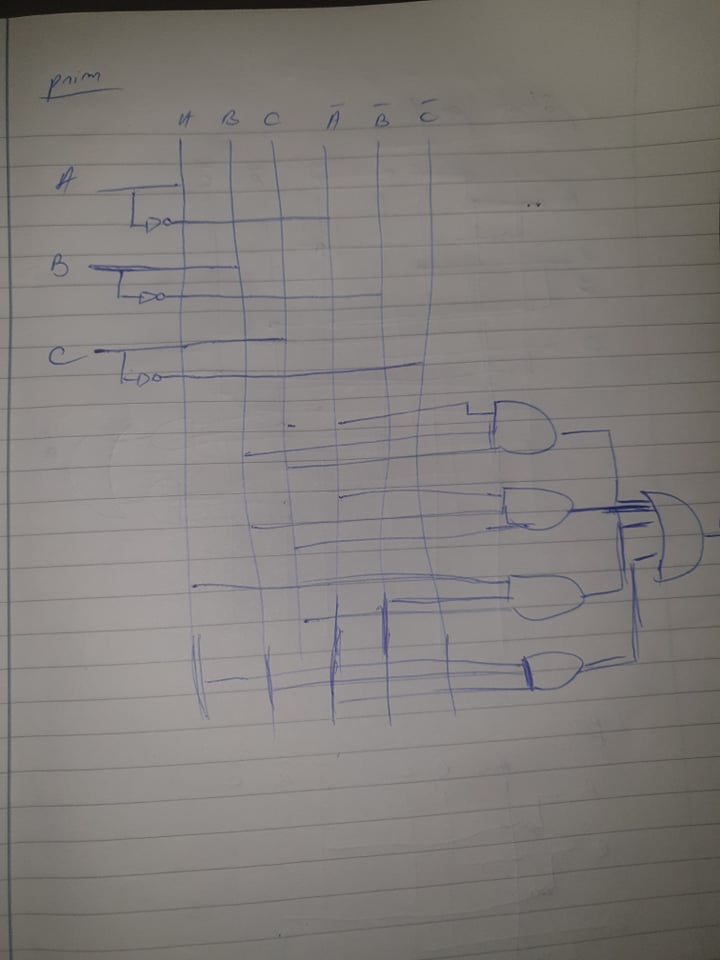 prim
A B C Ā B̄ C̄
A
B
C